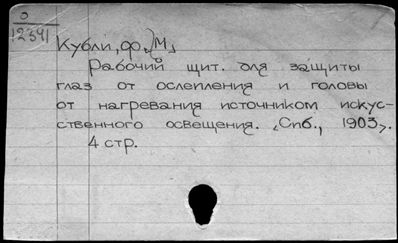 0
12341
Кубли, ф. М.
Рабочий щит. для защиты
глаз от ослепления и головы
от нагревания источником искус-
ственного освещения. <Спб., 1903>.
4 стр.